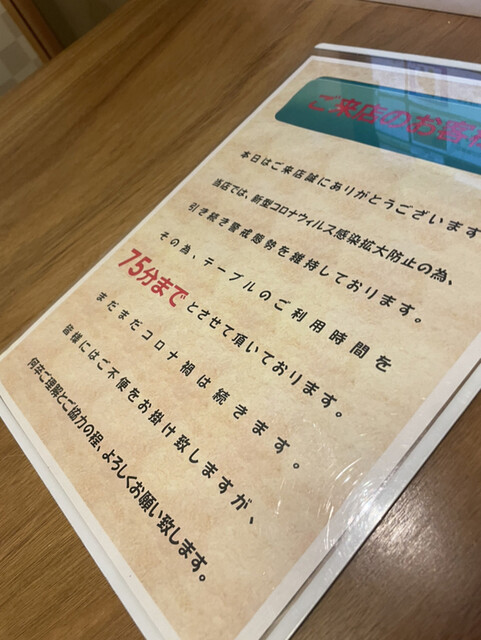 ご来店のお客
本日はご来店誠にありがとうございます
当店では、新型コロナウィルス感染拡大防止の為、
引き続き警戒態勢を維持しております。
その為、テーブルのご利用時間を
75分までとさせて頂いております。
まだまだコロナ禍は続きます。
皆様にはご不便をお掛け致しますが、
何卒ご理解とご協力の程、よろしくお願い致します。